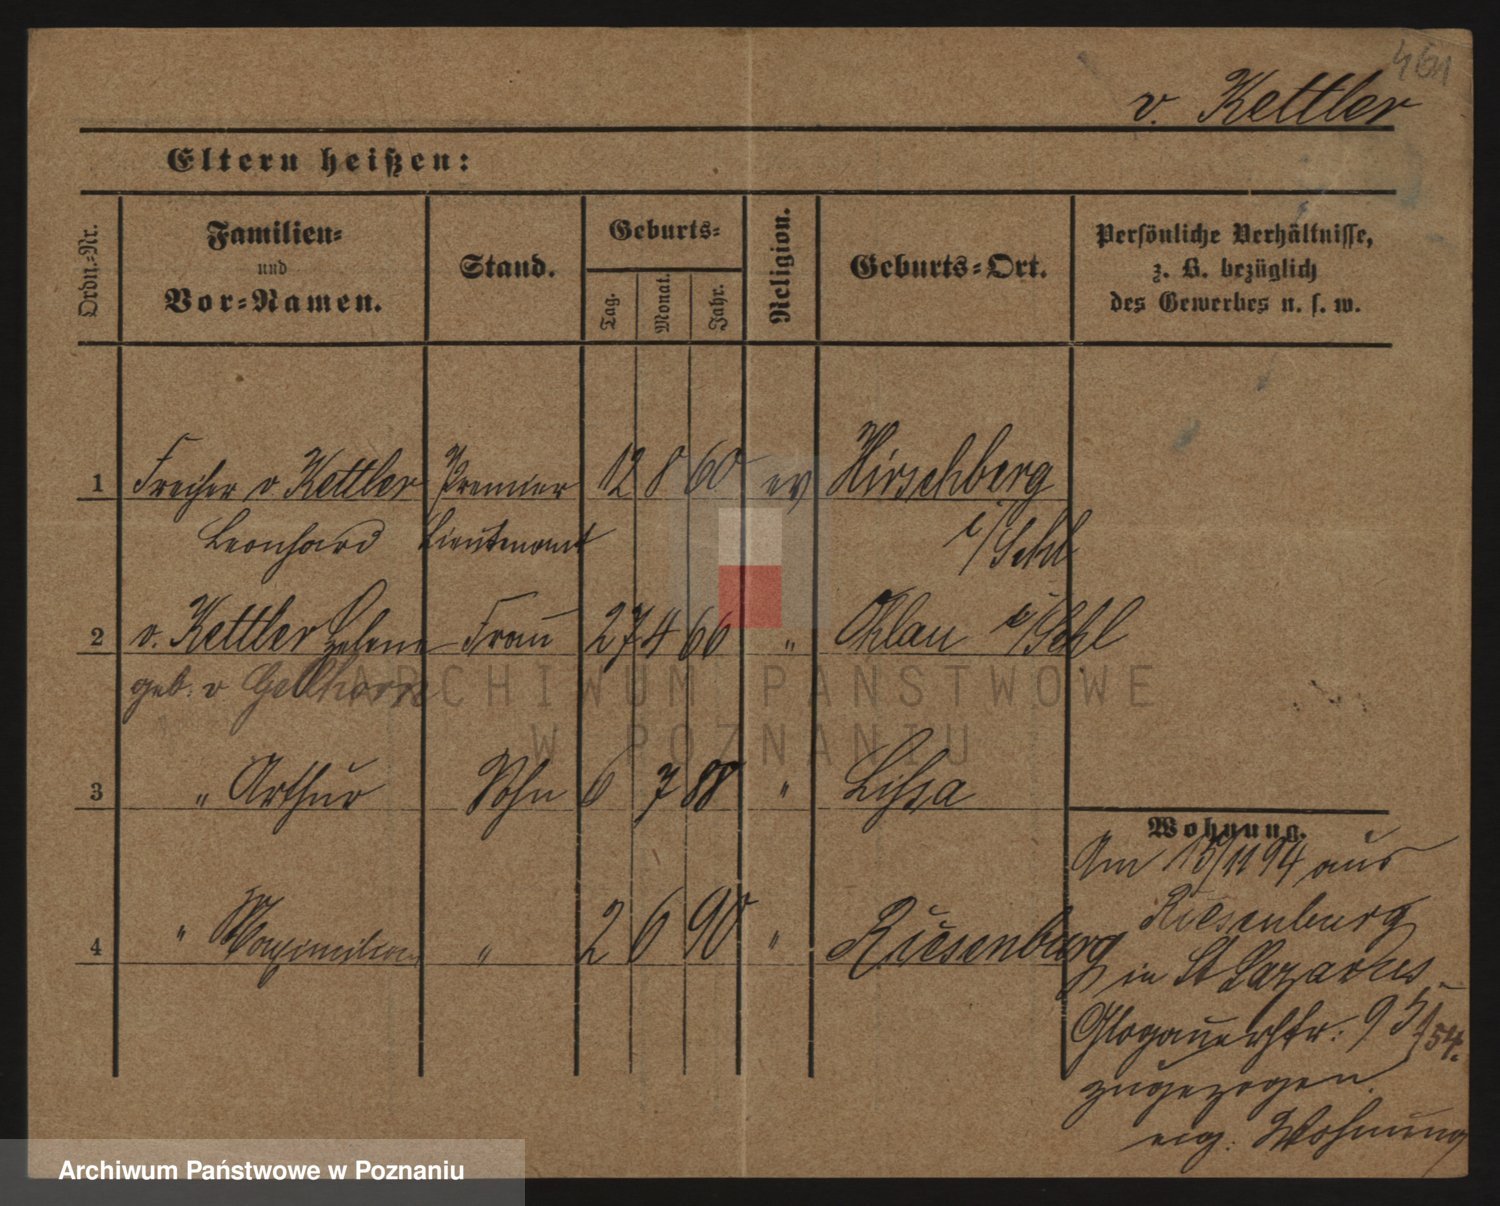 461
v. Kettler
Eltern heißen:
Ordn.-Nr.
Familien-
und
Vor-Namen.
Stand.
Geburts-
Tag.
Monat.
Jahr.
Religion.
Geburts-Ort.
Persönliche Verhältnisse,
z. B. bezüglich
des Gewerbes u. s. w.
1 Freiherr v Kettler Premier 12 8 60 ev Hirschberg
Leonhard Lieutenant i/Schl
2 v. Kettler Helene Frau 27 4 66 " Ohlau i/Schl
geb. v Gellhorn
3 " Arthur Sohn 6 7 88 " Lissa
4 " Maximilian " 2 6 90 " Riesenburg
Wohnung.
Am 15/11 94 aus
Riesenburg
in St Lazarus
Glogauerstr: 95/54.
zugezogen.
eig. Wohnung
ARCHIWUM PAŃSTWOWE
W POZNANIU
Archiwum Państwowe w Poznaniu